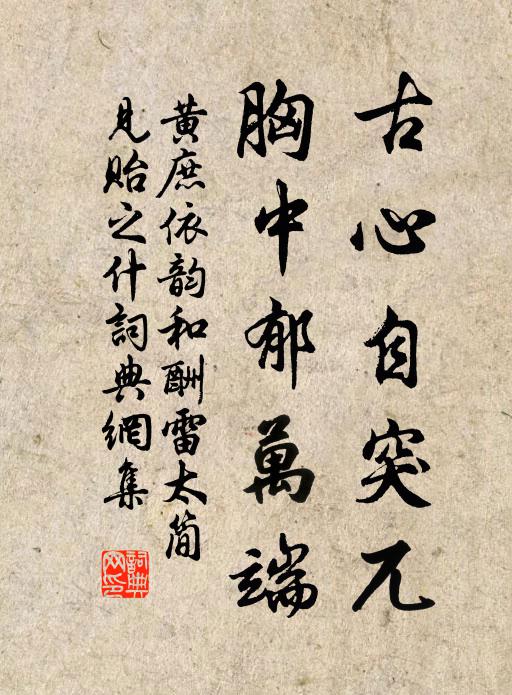 古心自突兀
胸中郁萬端
黄庶依韵和酬雷太简
見贻之什詞典網集
詞典網印